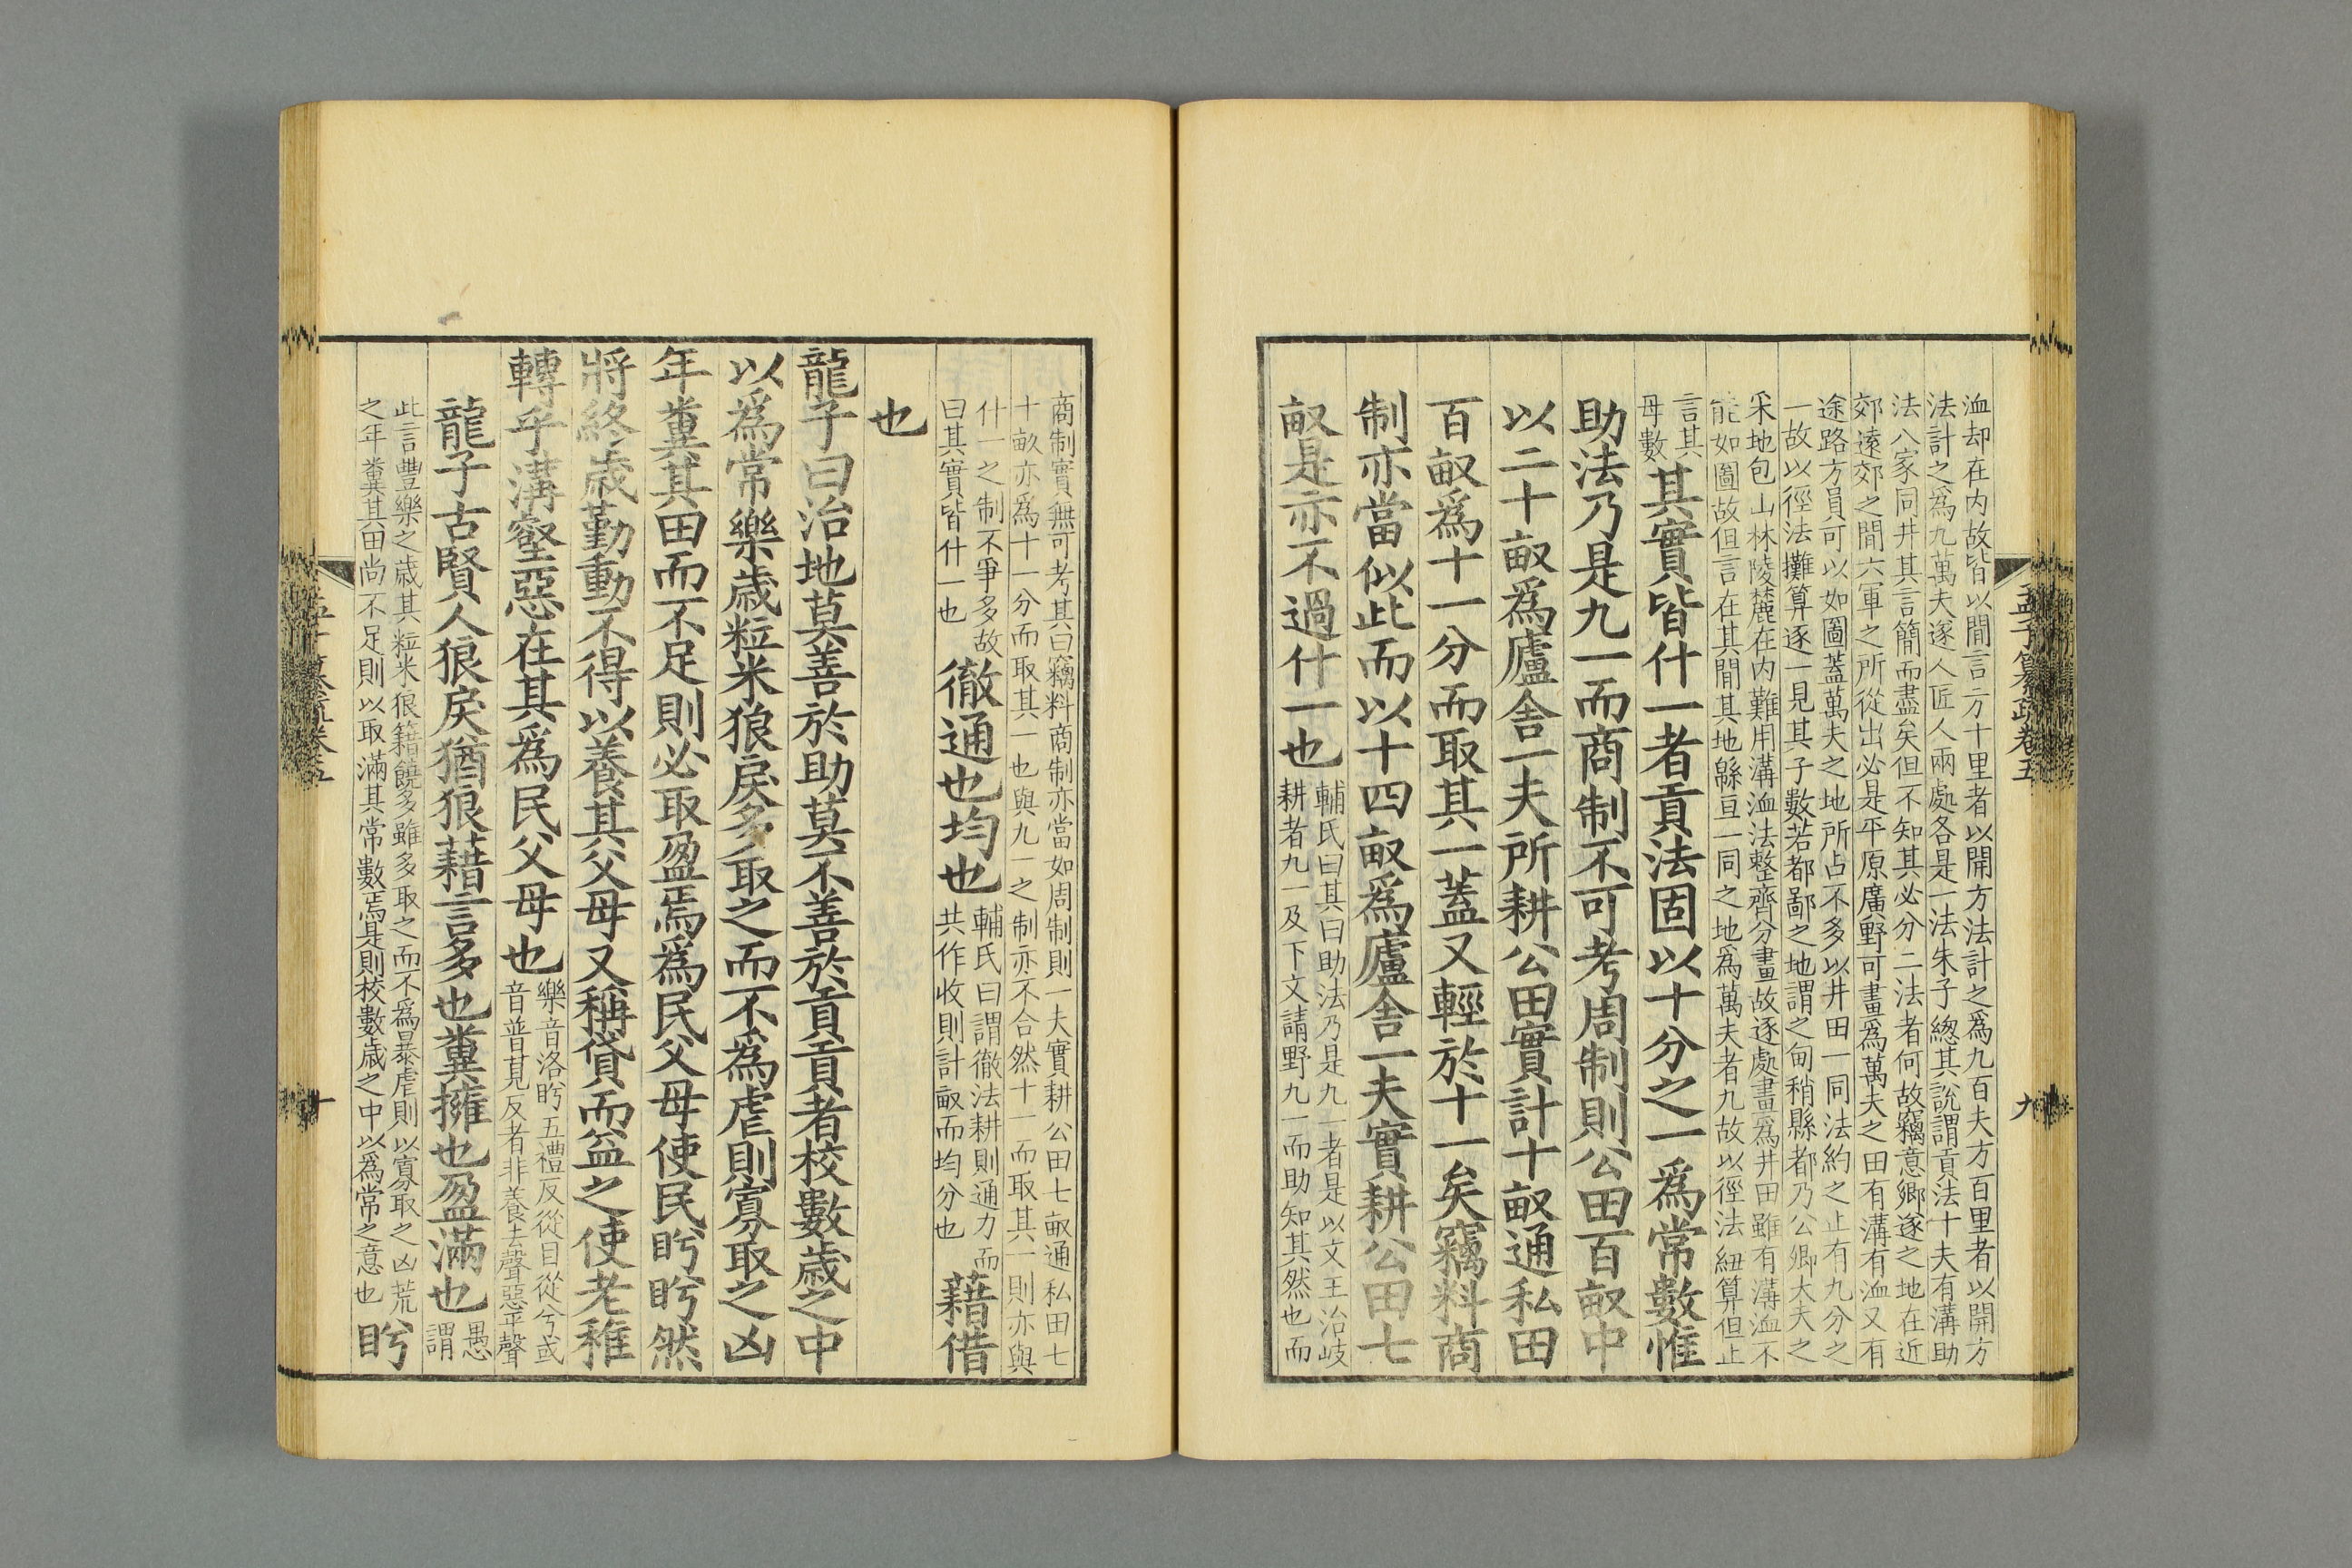 洫却在内故皆以間言方十里者以開方法計之爲九百夫方百里者以開方
法計之爲九萬夫遂人匠人兩處各是一法朱子緫其說謂貢法十夫有溝助
法八家同井其言簡而盡矣但不知其必分二法者何故竊意鄉遂之地在近
郊遠郊之間六軍之所從出必是平原廣野可畫爲萬夫之田有溝有洫又有
途路方員可以如圖蓋萬夫之地所占不多以井田一同法約之止有九分之
一故以徑法攤算逐一見其子數若都鄙之地謂之甸稍縣都乃公卿大夫之
采地包山林陵麓在内難用溝洫法整齊分畫故逐處畫爲井田雖有溝洫不
能如圖故但言在其間其地緜亘一同之地爲萬夫者九故以徑法紐算但止
言其
母數
其實皆什一者貢法固以十分之一爲常數惟
助法乃是九一而商制不可考周制則公田百畝中
以二十畝爲廬舎一夫所耕公田實計十畝通私田
百畝爲十一分而取其一蓋又輕於十一矣竊料商
制亦當似此而以十四畝爲廬舎一夫實耕公田七
畝是亦不過什一也
輔氏曰其曰助法乃是九一者是以文王治岐
耕者九一及下文請野九一而助知其然也而
孟子纂疏卷五
九
商制實無可考其曰竊料商制亦當如周制則一夫實耕公田七畝通私田七
十畝亦爲十一分而取其一也與九一之制亦不合然十一而取其一則亦與
什一之制不爭多故
曰其實皆什一也
徹通也均也
輔氏曰謂徹法耕則通力而
共作收則計畝而均分也
藉借
也
龍子曰治地莫善於助莫不善於貢貢者校數歳之中
以爲常樂歳粒米狼戾多取之而不爲虐則寡取之凶
年糞其田而不足則必取盈焉爲民父母使民盻盻然
將終歳勤動不得以養其父母又稱貸而益之使老稚
轉乎溝壑惡在其爲民父母也
樂音洛盻五禮反從目從兮或
音普莧反者非養去聲惡平聲
龍子古賢人狼戾猶狼藉言多也糞擁也盈滿也
愚
謂
此言豐樂之歳其粒米狼籍饒多雖多取之而不爲暴虐則以寡取之凶荒
之年糞其田尚不足則以取滿其常數焉是則校數歳之中以爲常之意也
盻
十